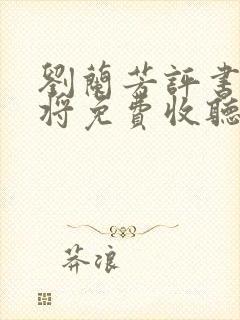 劉蘭芳評書
將免費收聽
莽浪